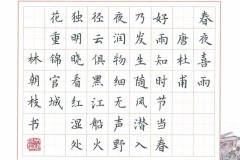 春夜喜雨
唐杜甫
好雨知时节当春
乃发生随风潜入
夜润物细无声野
径云俱黑江船火
独明晓看红湿处
花重锦官城
林朝枝书